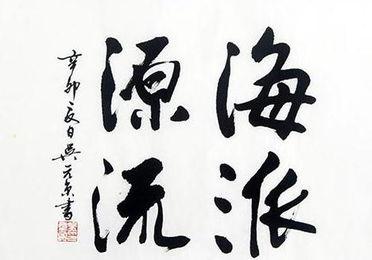 海派
源流
辛卯夏日吴元京书